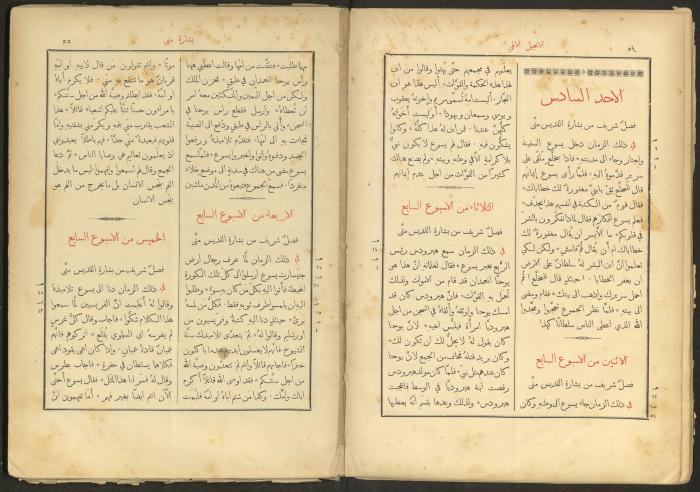 ٥٤
الانجيل الالهي
الاحد السادس
فصل شريف من بشارة القديس متى
في ذلك الزمان دخل يسوع السفينة
واجتاز وجاء الى مدينته * فاذا بمخلع ملقى على
سرير قدموه اليه * فلما رأى يسوع ايمانهم
قال للمخلع ثق يا بني مغفورة لك خطاياك *
فقال قوم من الكتبة في انفسهم هذا يجدف *
فعلم يسوع افكارهم فقال لماذا تفكرون بالشر
في قلوبكم * ما الايسر ان يقال مغفورة لك
خطاياك ام أن يقال قم فامش * ولكن لكي
تعلموا ان ابن البشر له سلطان على الارض
ان يغفر الخطايا * حينئذ قال للمخلع قم
احمل سريرك واذهب الى بيتك * فقام ومضى
الى بيته * فلما نظر الجموع تعجبوا ومجدوا
الله الذي اعطى الناس سلطانا كهذا
الاثنين من الاسبوع السابع
فصل شريف من بشارة القديس متى
في ذلك الزمان جاء يسوع الى وطنه وكان
يعلمهم في مجمعهم حتى بهتوا وقالوا من اين
لهذا هذه الحكمة والقوات * أليس هذا هو ابن
النجار * أليست امه تسمى مريم واخوته يعقوب
ويوسي وسمعان ويهوذا * أوليست اخواته
كلهن عندنا * فمن اين له هذا كله * وكانوا
يشكون فيه * فقال لهم يسوع لا يكون نبي
بلا كرامة الا في وطنه وبيته * ولم يصنع هناك
كثيرا من القوات من اجل عدم ايمانهم
الثلاثاء من الاسبوع السابع
فصل شريف من بشارة القديس متى
في ذلك الزمان سمع هيرودس رئيس
الربع بخبر يسوع * فقال لغلمانه ان هذا هو
يوحنا المعمدان قد قام من الاموات ولذلك
تعمل به القوات * فان هيرودس كان قد
امسك يوحنا واوثقه وألقاه في السجن من اجل
هيروديا امرأة فيلبس اخيه * لان يوحنا
كان يقول له لا يحل لك ان تكون لك *
وكان يريد قتله فخاف من الجمع لانه
كان عندهم مثل نبي * فلما كان مولد هيرودس
رقصت ابنة هيروديا في الوسط فاعجبت
هيرودس * ولذلك وعدها بقسم انه يعطيها
بشارة متى
٥٥
مهما طلبت * فتلقنت من امها وقالت اعطني ههنا
رأس يوحنا المعمدان في طبق * فحزن الملك
ولكن من اجل اليمين والمتكئين معه امر
ان تعطاه * وارسل فقطع رأس يوحنا في
السجن * وأتي بالرأس في طبق ودفع الى الصبية
فجاءت به الى امها * فتقدم تلاميذه ورفعوا
الجسد ودفنوه واتوا واخبروا يسوع * فلما سمع
يسوع مضى من هناك في سفينة الى موضع خلاء
منفردا * فسمع الجموع فتبعوه من المدن ماشين
الاربعاء من الاسبوع السابع
فصل شريف من بشارة القديس متى
في ذلك الزمان لما عرف رجال ارض
جنيسارت يسوع ارسلوا الى كل تلك الكورة
المحيطة فأتوا اليه بكل من كان به سوء * وطلبوا
اليه ان يلمسوا طرف ثوبه فقط * فكل من لمسه
برئ * حينئذ دنا اليه كتبة وفريسيون من
اورشليم وقالوا له * لم يتعدى تلاميذك سنة
الشيوخ فانهم لا يغسلون ايديهم حينما ياكلون
خبزا * فاجابهم قائلا وانتم لم تتعدون وصية الله
من اجل سنتكم * فقد اوصى الله قائلا أكرم
اباك وامك * وكل من شتم اباه او امه فليمت
موتا * وانتم تقولون من قال لابيه او امه
قربان هو ما تنتفع به مني * فلا يكرم أباه
او امه * فقد ابطلتم وصية الله من اجل سنتكم *
يا مراءون حسنا تنبأ عليكم اشعيا قائلا * هذا
الشعب يقترب مني بفمه ويكرمني بشفتيه واما
قلوبهم فبعيدة مني جدا * فهم باطلا يعبدونني
اذ يعلمون تعاليم هي وصايا الناس * ثم دعا
الجمع وقال لهم اسمعوا وافهموا * ليس ما يدخل
الفم ينجس الانسان بل ما يخرج من الفم هو
ينجس الانسان
الخميس من الاسبوع السابع
فصل شريف من بشارة القديس متى
في ذلك الزمان دنا الى يسوع تلاميذه
وقالوا له أعلمت ان الفريسيين لما سمعوا
هذا الكلام شكوا * فاجاب وقال كل غرس
لم يغرسه ابي السماوي يقلع * اتركوهم فانهم
عميان قادة عميان * واذا كان اعمى يقود اعمى
فكلاهما يسقطان في حفرة * فاجاب بطرس
وقال له فسر لنا هذا المثل * فقال يسوع أحتى
الآن انتم ايضا بغير فهم * أما تفهمون ان